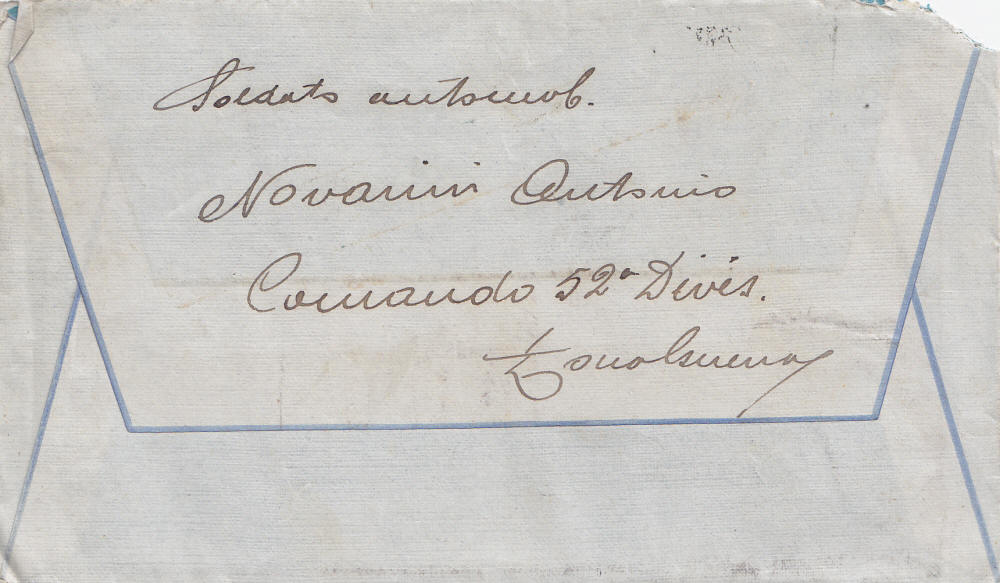 Soldato automob.
Novarini Antonio
Comando 52ª Divis.
Zona Guerra